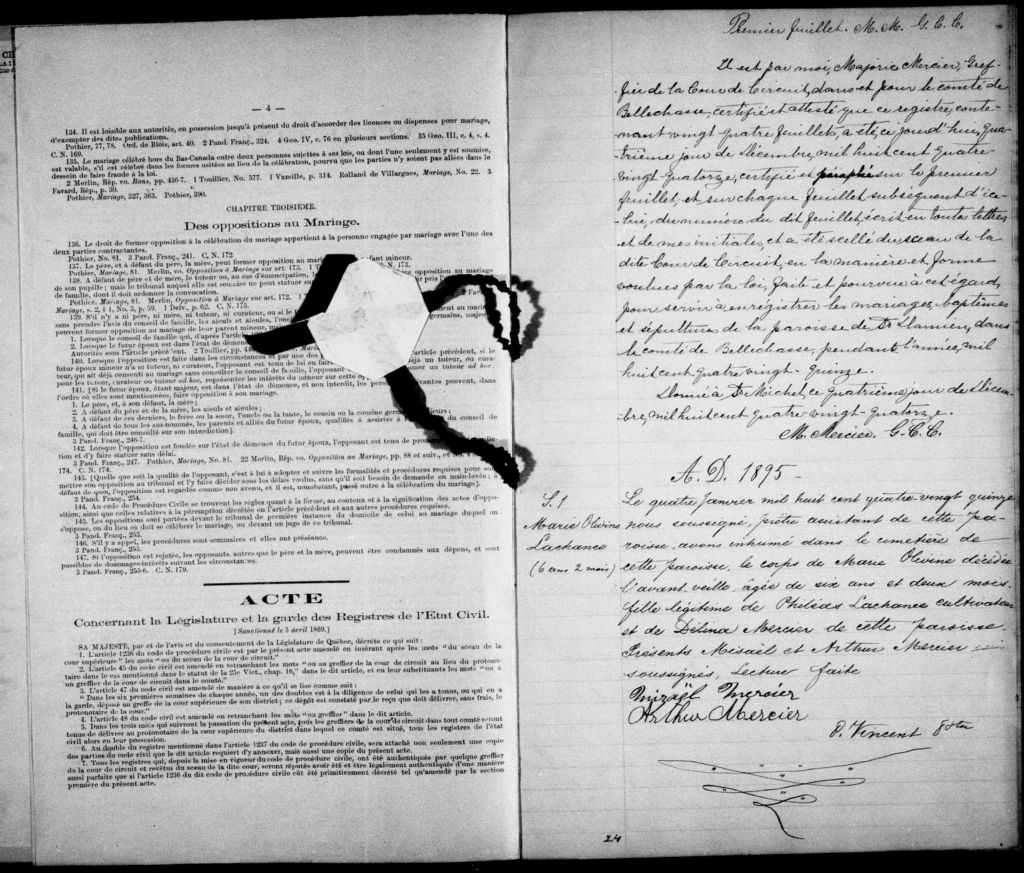 — 4 —
134. Il est loisible aux autorités, en possession jusqu'à présent du droit d'accorder des licences ou dispenses pour mariage,
d'exempter des dites publications.
Pothier, 77, 78. Ord. de Blois, art. 40. 2 Pand. Franç., 324. 4 Geo. IV, c. 76 en plusieurs sections. 35 Geo. III, c. 4, s. 4.
C. N. 169.
135. Le mariage célébré hors du Bas-Canada entre deux personnes sujettes à ses lois, ou dont l'une seulement y est soumise,
est valable, s'il est célébré dans les formes usitées au lieu de la célébration, pourvu que les parties n'y soient pas allées dans le
dessein de faire fraude à la loi.
2 Merlin, Rép. vo. Bans, pp. 436-7. 1 Touillier, No. 577. 1 Vazeille, p. 314. Rolland de Villargues, Mariage, No. 22. 3
Favard, Rép., p. 30.
Pothier, Mariage, 327, 363. Pothier, 390.
CHAPITRE TROISIEME.
Des oppositions au Mariage.
136. Le droit de former opposition à la célébration du mariage appartient à la personne engagée par mariage avec l'une des
deux parties contractantes.
Pothier, No. 81. 3 Pand. Franç., 241. C. N. 172.
137. Le père, et à défaut du père, la mère, peut former opposition au enfant mineur.
Pothier, Mariage, 81. Merlin, vo. Opposition à Mariage sur art. 173. N. 173.
138. A défaut de père et de mère, le tuteur ou, au cas d'émancipation, opposition au mariage
de son pupille; mais le tribunal auquel elle est soumise ne peut statuer
de famille, dont il doit ordonner la convocation.
Pothier, Mariage, 81. Merlin, Opposition à Mariage sur art. 172.
Mariage, s. 2, § 1, No. 3, p. 59. 1 Delv., p. 62. C. N. 175.
139. S'il n'y a ni père, ni mère, ni tuteur, ni curateur, ou si le
sans prendre l'avis du conseil de famille, les aïeuls et aïeules, l'oncle germains, majeurs
peuvent former opposition au mariage de leur parent mineur
1. Lorsque le conseil de famille qui, d'après l'article
2. Lorsque le futur époux est dans l'état de démence
Autorités sous l'article précédent. 2 Touillier, pp.
140. Lorsque l'opposition est faite dans les circonstances et par une des l'article précédent, si le
futur époux mineur n'a ni tuteur, ni curateur, l'opposant est tenu de lui en
teur, qui ait déjà consenti au mariage sans consulter le conseil de famille, l'opposant un tuteur ad hoc,
pour les tuteur, curateur ou tuteur ad hoc, représenter les intérêts du mineur sur cette
141. [Si le futur époux, étant majeur, est dans l'état de démence, et non interdit, les peuvent, dans
l'ordre où elles sont mentionnées, faire opposition à son mariage.
1. Le père, et, à son défaut, la mère;
2. A défaut du père et de la mère, les aïeuls et aïeules;
3. A défaut de ces derniers, le frère ou la sœur, l'oncle ou la tante, le cousin ou la cousine
4. A défaut de tous les sus-nommés, les parents et alliés du futur époux, qualifiés à assister à du conseil de
famille, qui doit être consulté sur son interdiction].
3 Pand. Franç., 246-7.
142. Lorsque l'opposition est fondée sur l'état de démence du futur époux, l'opposant est tenu de
tion et d'y faire statuer sans délai.
3 Pand. Franç., 247. Pothier, Mariage, No. 81. 22 Merlin, Rép. vo. Opposition au Mariage, pp. 88 et suiv., et
174. C. N. 174.
143. [Quelle que soit la qualité de l'opposant, c'est à lui à adopter et suivre les formalités et procédures requises pour sou-
mettre son opposition au tribunal et l'y faire décider sous les délais voulus, sans qu'il soit besoin de demande en main-levée; à
défaut de quoi, l'opposition est regardée comme non avenu, et il est, nonobstant, passé outre à la célébration du mariage].
3 Pand. Franç., 254.
144. Au code de Procédure Civile se trouvent les règles quant à la forme, au contenu et à la signification des actes d'oppo-
sition, ainsi que celles relatives à la péremption décrétée au l'article précédent et aux autres procédures requises.
145. Les oppositions sont portées devant le tribunal de première instance du domicile de celui au mariage duquel on
s'oppose, ou du lieu où doit se célébrer le mariage, ou devant un juge de ce tribunal.
3 Pand. Franç., 253.
146. S'il y a appel, les procédures sont sommaires et elles ont préséance.
3 Pand. Franç., 253.
147. Si l'opposition est rejetée, les opposants, autres que le père et la mère, peuvent être condamnés aux dépens, et sont
passibles de dommages-intérêts suivant les circonstances.
3 Pand. Franç., 255-6. C. N. 179.
ACTE
Concernant la Législature et la garde des Registres de l'Etat Civil.
[Sanctionné le 5 avril 1869.]
SA MAJESTE, par et de l'avis et du consentement de la Législature de Québec, décrète ce qui suit:
1. L'article 1236 du code de procédure civile est par le présent acte amendé en insérant après les mots "du sceau de la
cour supérieure" les mots "ou du sceau de la cour de circuit."
2. L'article 45 du code civil est amendé en retranchant les mots "ou au greffier de la cour de circuit au lieu du protono-
taire dans le cas mentionné dans le statut de la 25e Vict., chap. 16," dans le dit article, et en leur substituant les mots "ou à
un greffier de la cour de circuit dans le comté."
3. L'article 47 du code civil est amendé de manière à ce qu'il se lise comme suit:
"Dans les six premières semaines de chaque année, un des doubles est à la diligence de celui qui les a tenus, ou qui en a
la garde, déposé au greffe de la cour supérieure de son district; ce dépôt est constaté par le reçu que doit délivrer, sans frais, le
protonotaire de la cour."
4. L'article 48 du code civil est amendé en retranchant les mots "ou greffier" dans le dit article.
5. Dans les trois mois qui suivront la passation du présent acte, tous les greffiers de la cour de circuit dans tout comté seront
tenus de délivrer au protonotaire de la cour supérieure du district dans lequel ce comté est situé, tous les registres de l'état
civil alors en leur possession.
6. Au double du registre mentionné dans l'article 1237 du code de procédure civile, sera attaché non seulement une copie
des parties du code civil que le dit article requiert d'y annexer, mais aussi une copie du présent acte.
7. Tous les registres qui, depuis la mise en vigueur du code de procédure civile, ont été authentiqués par quelque greffier
de la cour de circuit et revêtus du sceau de la dite cour, seront réputés avoir été et être légalement authentiqués d'une manière
aussi parfaite que si l'article 1236 du dit code de procédure civile eût été primitivement décrété tel qu'amendé par la section
première du présent acte.
Premier feuillet. M. M. G. C. C.
Il est par moi, Majoric Mercier, Gref-
fier de la Cour de Circuit, dans et pour le comté de
Bellechasse, certifié et attesté que ce registre, conte-
nant vingt quatre feuillets, a été, ce jour d'hui, qua-
trième jour de Décembre, mil huit cent quatre-
vingt-quatorze, certifié et paraphé sur le premier
feuillet, et sur chaque feuillet subséquent d'ice-
lui, du numéro du dit feuillet, écrit en toutes lettres
et de mes initiales, et a été scellé du sceau de la
dite Cour de Circuit, en la manière et forme
voulues par la loi, faite et pourvue à cet égard,
pour servir à enregistrer les mariages, baptêmes
et sépultures de la paroisse de St Damien, dans
le comté de Bellechasse, pendant l'année, mil
huit cent quatre vingt-quinze.
Donné à St Michel, ce quatrième jour de Décem-
bre, mil huit cent quatre vingt-quatorze.
M. Mercier, G. C. C.
A. D. 1895 -
S. 1
Marie Olivine
Lachance
(6 ans 2 mois)
Le quatre Janvier mil huit cent quatre vingt quinze
nous soussigné, prêtre assistant de cette pa-
roisse, avons inhumé dans le cimetière de
cette paroisse, le corps de Marie Olivine décédée
l'avant veille, âgée de six ans et deux mois
fille légitime de Philias Lachance cultivateur
et de Délina Mercier de cette paroisse.
Présents Misaël et Arthur Mercier
soussignés, Lecture faite
Mizaël Mercier
Arthur Mercier
P. Vincent Ptre
24